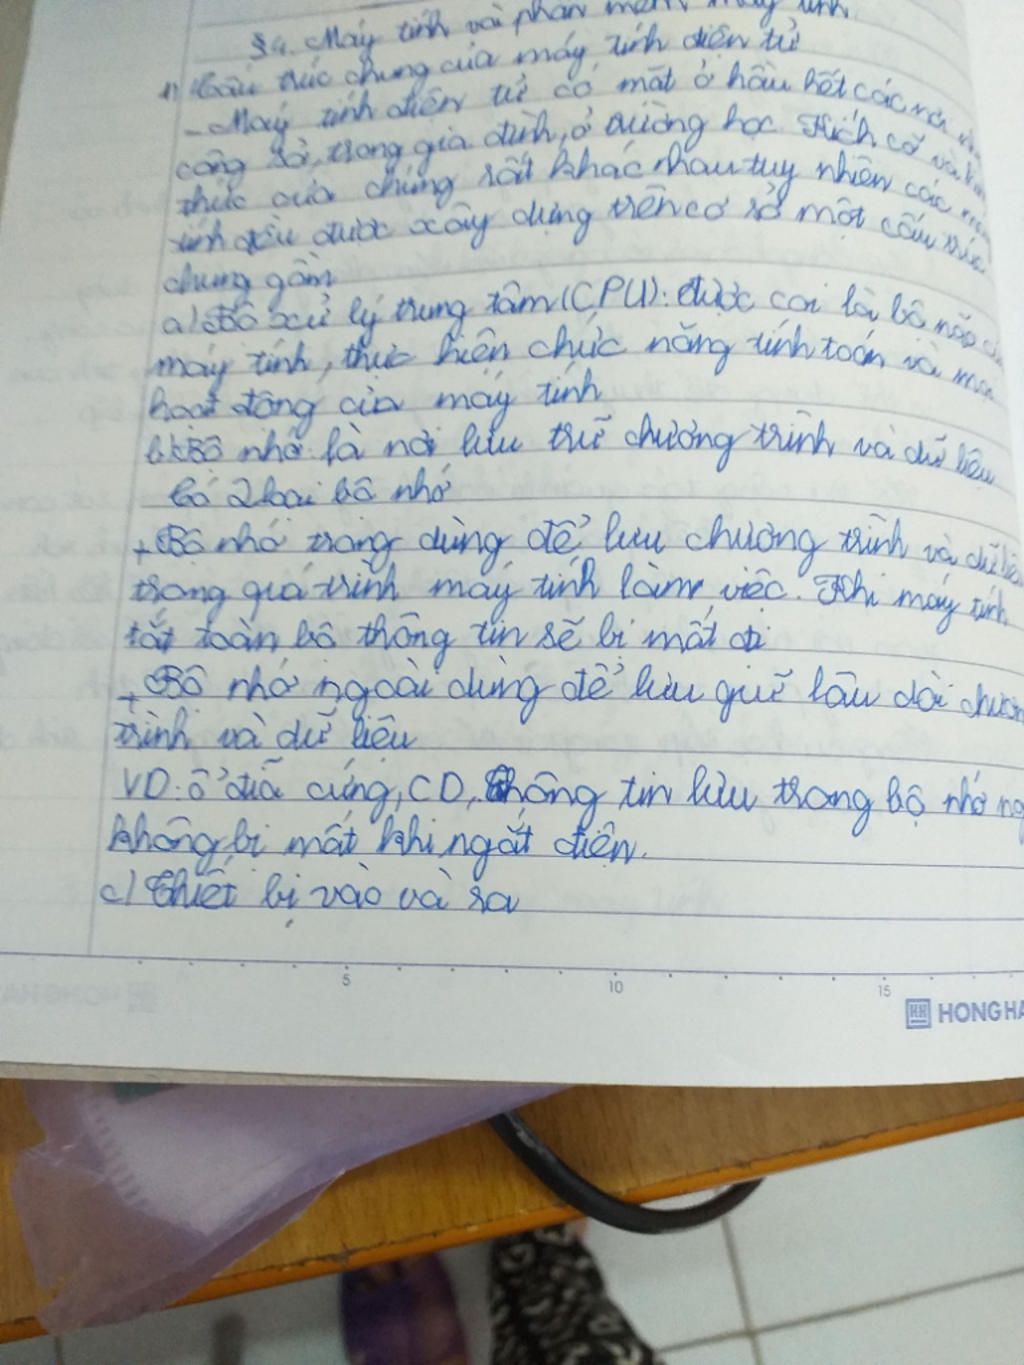 §4. Máy tính và phần mềm máy tính
1) Cấu trúc chung của máy tính điện tử
- Máy tính điện tử có mặt ở hầu hết các nơi
công sở, trong gia đình, ở trường học. Kích cỡ và
thức của chúng rất khác nhau tuy nhiên các
tính đều được xây dựng trên cơ sở một cấu trúc
chung gồm
a) Bộ xử lý trung tâm (CPU): được coi là bộ não
máy tính, thực hiện chức năng tính toán và mọi
hoạt động của máy tính
b) Bộ nhớ: là nơi lưu trữ chương trình và dữ liệu
Có 2 loại bộ nhớ
+ Bộ nhớ trong dùng để lưu chương trình và dữ liệu
trong quá trình máy tính làm việc. Khi máy tính
tắt toàn bộ thông tin sẽ bị mất đi
+ Bộ nhớ ngoài dùng để lưu giữ lâu dài chươn
trình và dữ liệu
VD: ổ đĩa cứng, CD, thông tin lưu trong bộ nhớ ng
không bị mất khi ngắt điện.
c) Thiết bị vào và ra
5 10 15
HH HONG HA